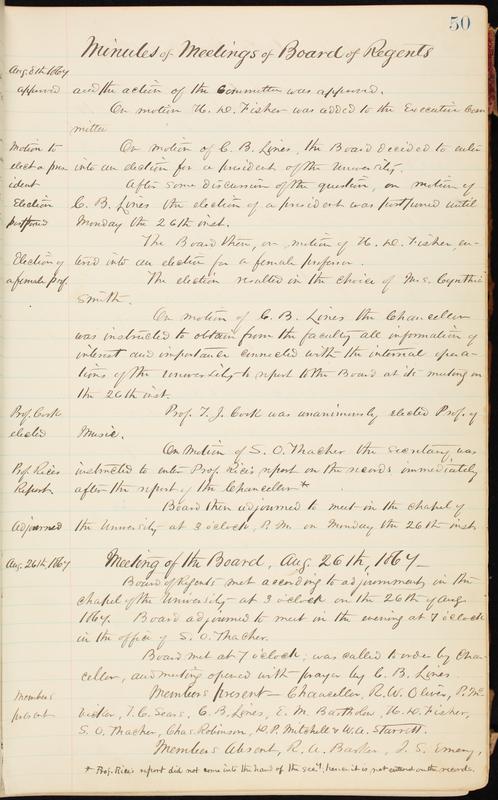 50
Minutes of Meetings of Board of Regents
Aug. 8th 1867
approved and the action of the Committee was approved.
On motion H. D. Fisher was added to the Executive Com
mittee
Motion to On motion of C. B. Lines, the Board decided to enter
elect a pres into an election for a president of the University.
ident After some discussion of the question, on motion of
Election C. B. Lines the election of a president was postponed until
postponed Monday the 26th inst.
The Board then, on motion of H. D. Fisher en-
Election of tered into an election for a female professor.
a female Prof. The election resulted in the choice of Mrs. Cynthia
Smith.
On motion of C. B. Lines the Chancellor
was instructed to obtain from the faculty all information of
interest and importance connected with the internal opera-
tions of the University & to report to the Board at its meeting on
the 26th inst.
Prof. Cook Prof. T. J. Cook was unanimously elected Prof. of
elected Music.
On Motion of S. O. Thacher the Secretary was
Prof. Rice's instructed to enter Prof. Rice's report on the records immediately
Report after the report of the Chancellor*
Board then adjourned to meet in the chapel of
Adjourned the University at 3 o'clock, P.M. on Monday the 26th inst.
Aug. 26th, 1867 Meeting of the Board, Aug. 26th, 1867—
Board of Regents met according to adjournment, in the
chapel of the University at 3 o'clock on the 26th of Aug.
1867. Board adjourned to meet in the evening at 7 o'clock
in the office of S. O. Thacher.
Board met at 7 o'clock; was called to order by Chan-
cellor, and meeting opened with prayer by C. B. Lines.
Members Members present— Chancellor, R. W. Oliver, P. Mc
present Vicker, T. C. Sears, C. B. Lines, E. M. Bartholow, H. D. Fisher,
S. O. Thacher, Chas. Robinson, D. P. Mitchell & W. A. Starrett.
Members Absent, R. A. Barker, J. S. Emery,
* Prof. Rice's report did not come into the hand of the Sec'y; hence it is not entered on the records.